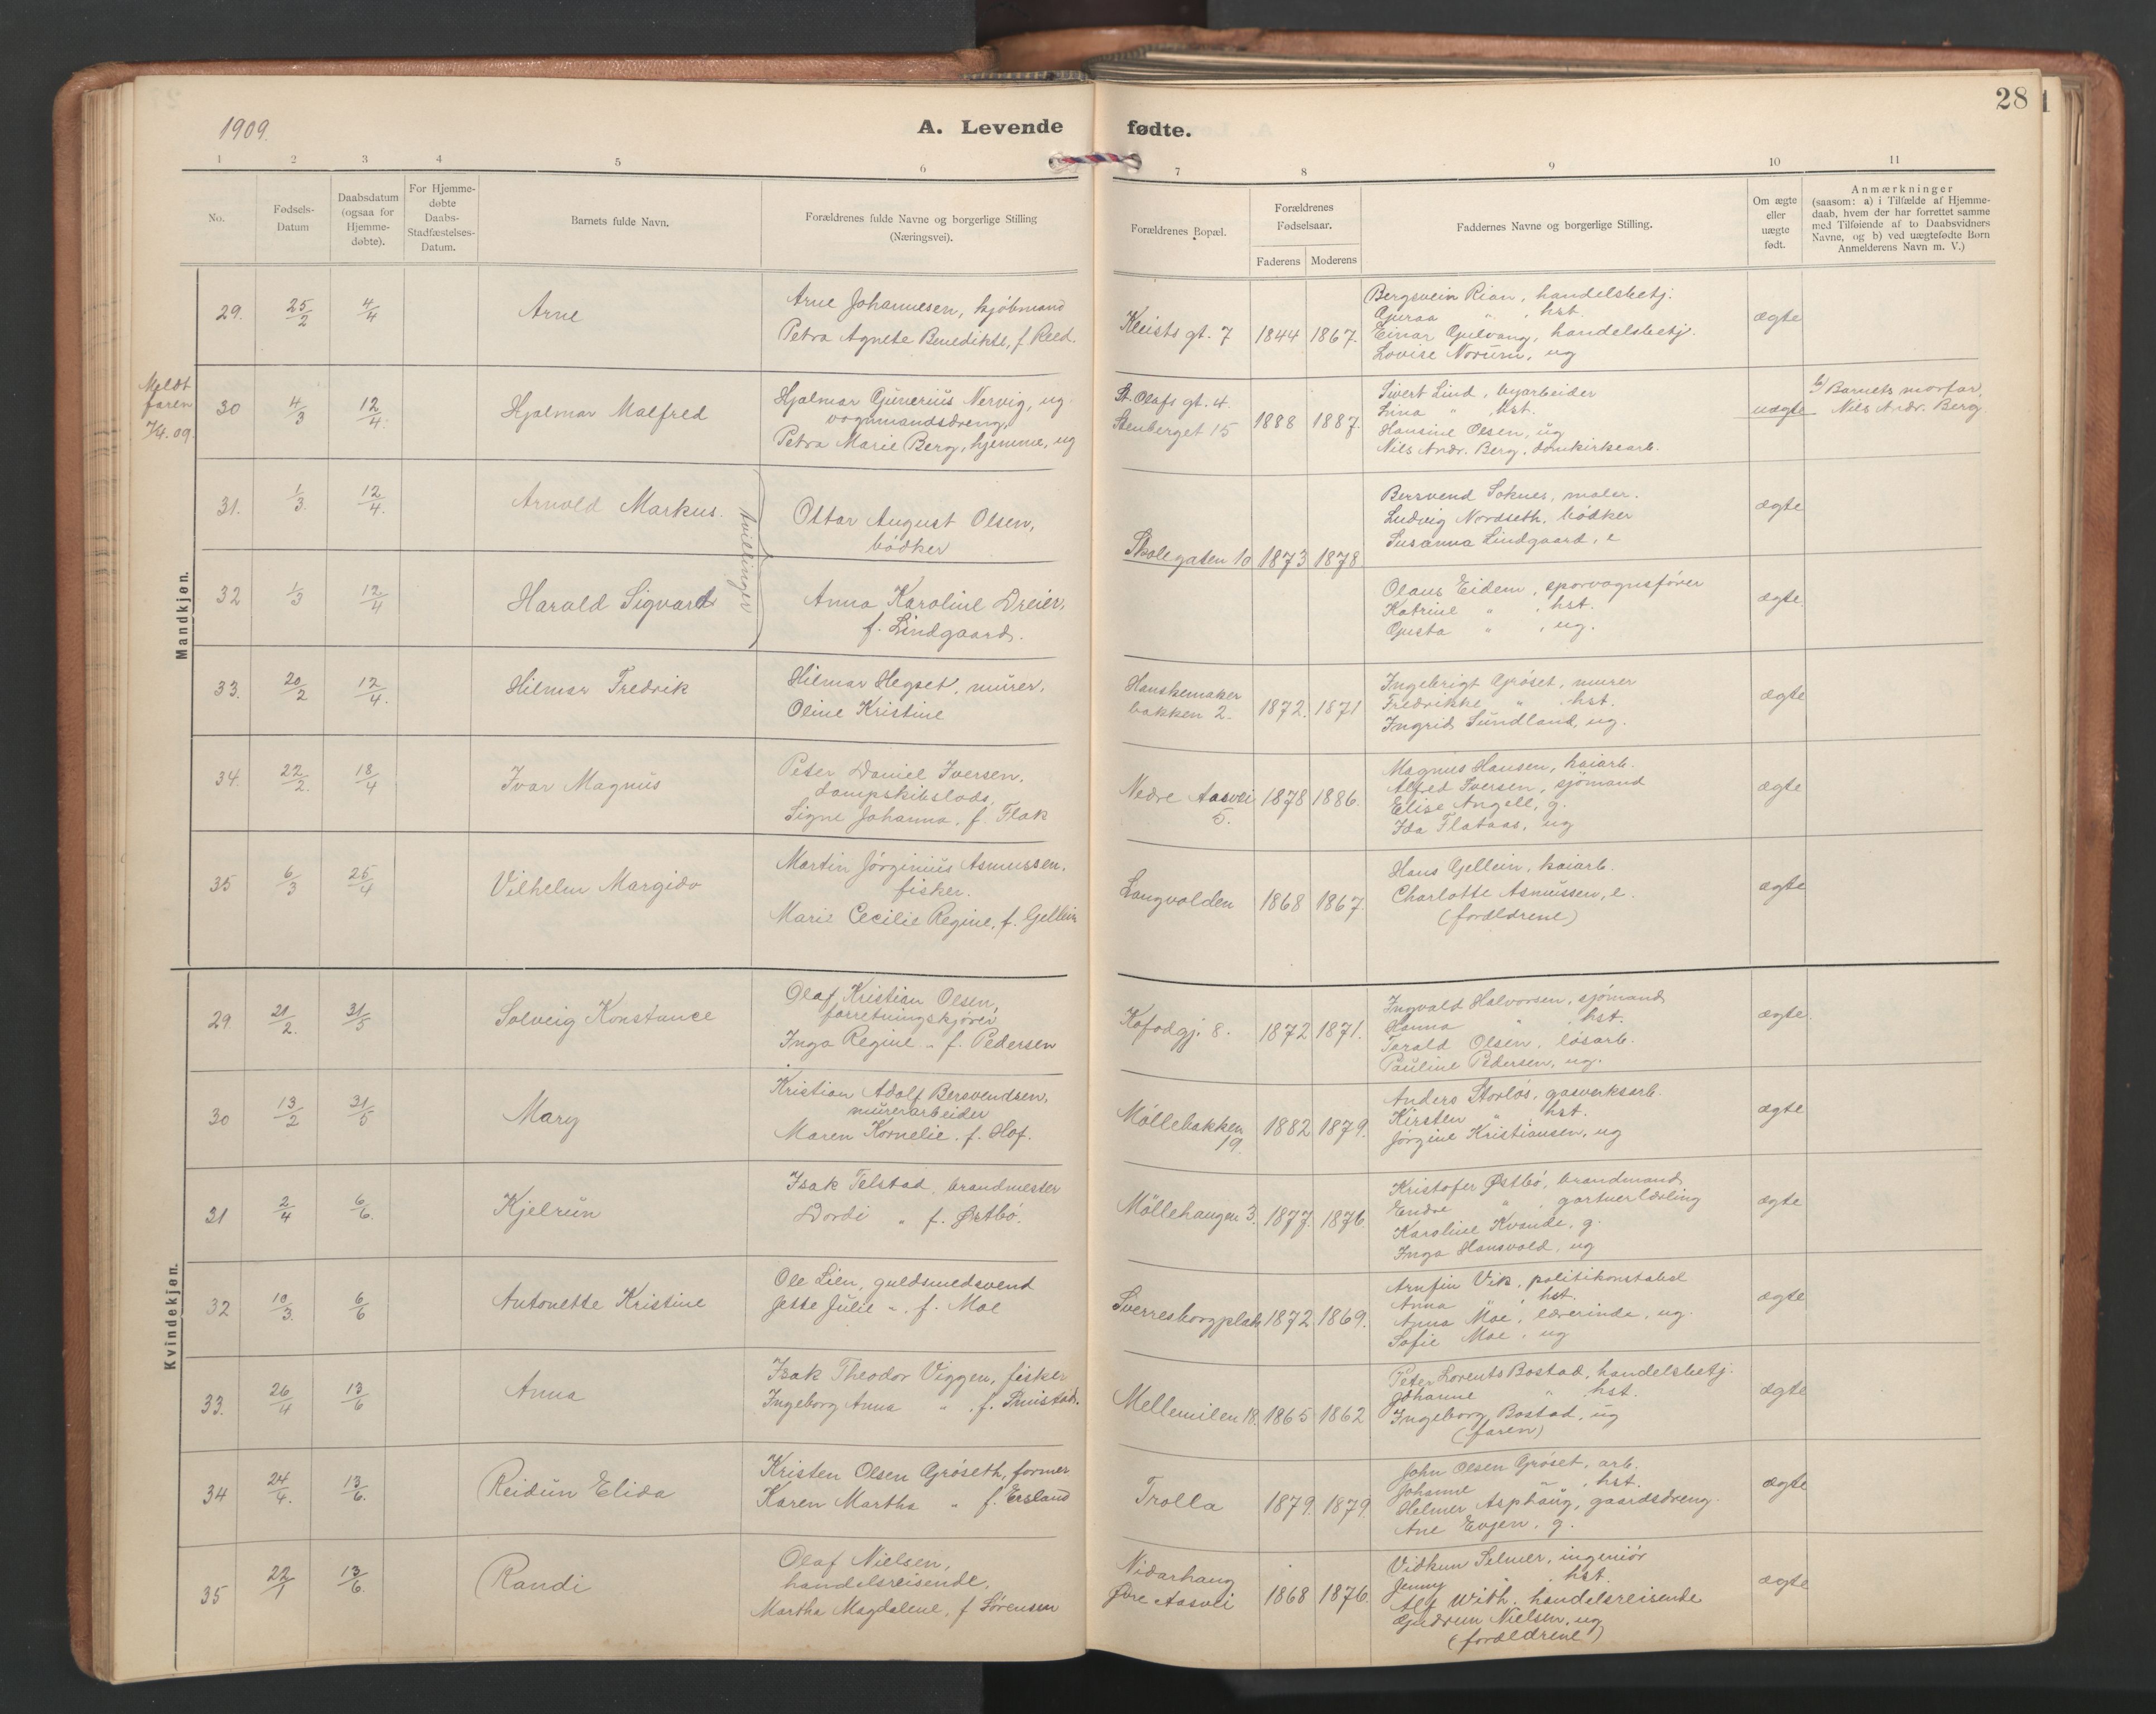 28
1909.
A. Levende fødte.
1 2 3 4 5 6 7 8 9 10 11
No.
Fødsels-
Datum
Daabsdatum
(ogsaa for
Hjemme-
døbte).
For Hjemme-
døbte
Daabs-
Stadfæstelses-
Datum.
Barnets fulde Navn.
Forældrenes fulde Navne og borgerlige Stilling
(Næringsvei).
Forældrenes Bopæl.
Forældrenes
Fødselsaar.
Faderens Moderens
Faddernes Navne og borgerlige Stilling.
Om ægte
eller
uægte
født.
Anmærkninger
(saasom: a) i Tilfælde af Hjemme-
daab, hvem der har forrettet samme
med Tilføiende af to Daabsvidners
Navne, og b) ved uægtefødte Børn
Anmelderens Navn m. V.)
Mandkjøn.
29. 25/2 4/4 Arne
Arne Johannesen, kjöbmand
Petra Agnete Benedikte, f. Reed.
Kleists gt. 7 1844 1867.
Bergsvein Rian, handelsbetj.
Guraa " , hst.
Einar Gulvang, handelsbetj.
Lovise Norum, ug
ægte
Meldt
faren
7/4.09.
30 4/3 12/4. Hjalmar Malfred
Hjalmar Gunerius Nervig, ug.
vognmandsdreng,
Petra Marie Berg, hjemme, ug
St. Olafs gt. 4.
Stenberget 15 1888 1887.
Sivert Lind, byarbeider
Lina " , hst.
Hansine Olsen, ug
Nils Andr. Berg, domkirkearb.
uægte
b/ Barnets morfar,
Nils Andr. Berg
31. 1/3. 12/4. Arnold Markus.
tvillinger
Ottar August Olsen,
bödker
Skolegaten 10 1873 1878
Bersvend Soknes, maler.
Ludvig Nordseth, bödker
Susanna Lindgaard, e
ægte
32 1/3 12/4 Harald Sigvard
Anna Karoline Dreier,
f. Lindgaard.
Olaus Eidem, sporvognsfører
Katrine " , hst.
Gusta " , ug.
ægte.
33. 20/2 12/4. Hilmar Fredrik
Hilmar Hegset, murer,
Oline Kristine
Hanskemaker
bakken 2. 1872. 1871
Ingebrigt Gröset, murer
Fredrikke " , hst.
Ingrid Sundland, ug.
ægte
34. 22/2. 18/4 Ivar Magnus
Peter Daniel Iversen,
dampskibslods,
Signe Johanna, f. Flak
Nedre Aasvei
5. 1878 1886.
Magnus Hansen, kaiarb.
Alfred Iversen, sjömand
Elise Angell, g.
Ida Flataas, ug
ægte
35 6/3 25/4 Vilhelm Margido
Martin Jörginius Asmussen,
fisker.
Marie Cecilie Regine, f. Gellein
Langvolden 1868 1867.
Hans Gellein, kaiarb.
Charlotte Asmussen, e.
(forældrene)
ægte
Kvindekjøn.
29 21/2. 31/5 Solveig Konstance
Olaf Kristian Olsen,
forretningskjörer
Inga Regine " f. Pedersen
Kofodgj. 8. 1872 1871.
Ingvald Halvorsen, sjömand
Hanna " , hst.
Tarald Olsen, lösarb.
Pauline Pedersen, ug.
ægte.
30 13/2 31/5 Mary
Kristian Adolf Bersvendsen,
murerarbeider
Maren Kornelie, f. Hof.
Möllebakken
19. 1882 1879.
Anders Storlös, gasverksarb.
Kirsten " hst.
Jörgine Kristiansen, ug
ægte
31 2/4 6/6. Kjelrun
Isak Telstad, brandmester
Dordi " f. Østbö.
Möllehaugen 3. 1877. 1876
Kristofer Østbö, brandmand
Endre " , gartnerlærling
Karoline Kvande, g.
Inga Hansvold, ug
ægte
32 10/3. 6/6 Antonette Kristine
Ole Lien, guldsmedsvend
Jette Julie ", f. Moe
Sverresborgplads 1872 1869.
Arnfin Vik, politikonstabel
Anna " , hst.
Anna Moe, lærerinde, ug.
Sofie Moe, ug
ægte
33. 26/4 13/6 Anna
Isak Theodor Viggen, fisker
Ingeborg Anna " , f. Smistad.
Mellemilen 18. 1865 1862
Peter Lorents Bostad, handelsbetj.
Johanne " , hst.
Ingeborg Bostad, ug
(faren)
ægte
34 24/4. 13/6. Reidun Elida
Kristen Olsen Gröseth, former
Karen Martha " f. Ersland
Trolla 1879. 1879.
John Olsen Gröset, arb.
Johanne " , hst.
Helmer Asphaug, gaardsdreng.
Ane Evjen, g.
ægte
35 22/1 13/6. Randi
Olaf Nielsen,
handelsreisende,
Martha Magdalene, f Sörensen
Nidarhaug
Øvre Aasvei 1868 1876.
Vidkun Selmer, ingeniör
Jenny " , hst.
Alf With, handelsreisende
Gudrun Nielsen, ug
(forældrene)
ægte